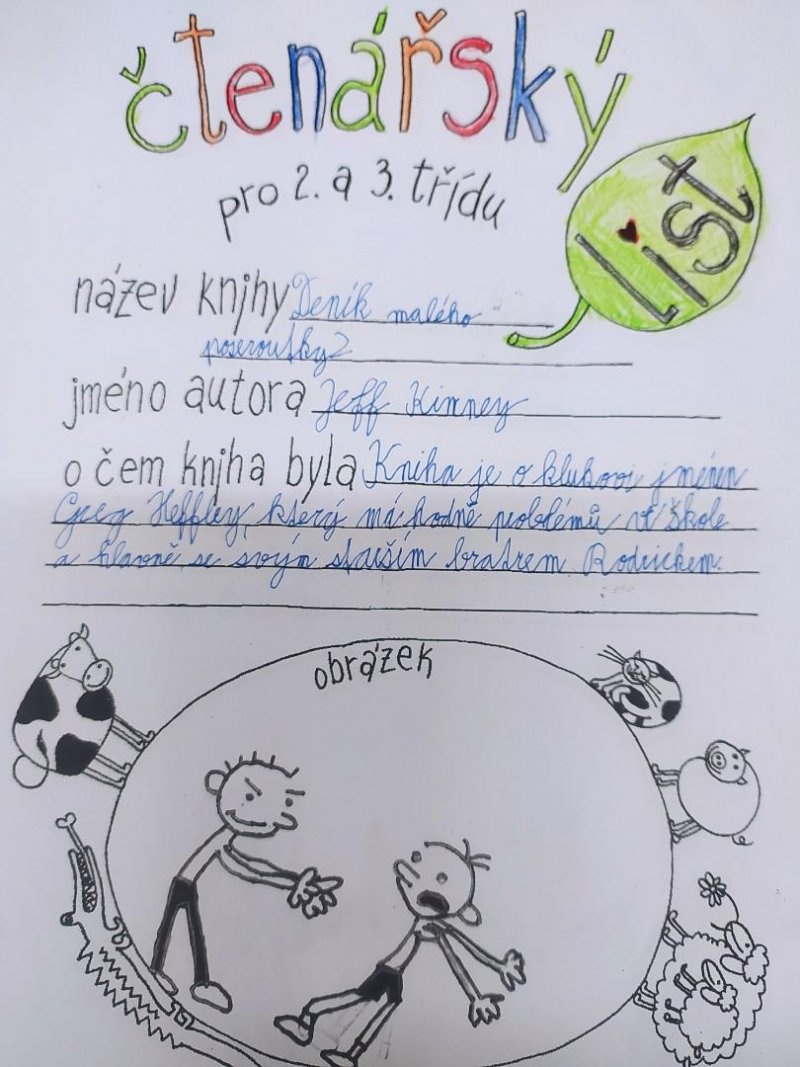 čtenářský
list
pro 2. a 3. třídu
název knihy Deník malého
poseroutky 2
jméno autora Jeff Kinney
o čem kniha byla Kniha je o klukovi jménem
Greg Heffley, který má hodně problémů ve škole
a hlavně se svým starším bratrem Rodrickem.
obrázek